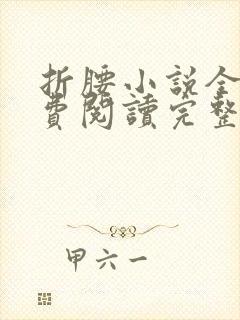 折腰小説全
費閱讀完整
甲六一